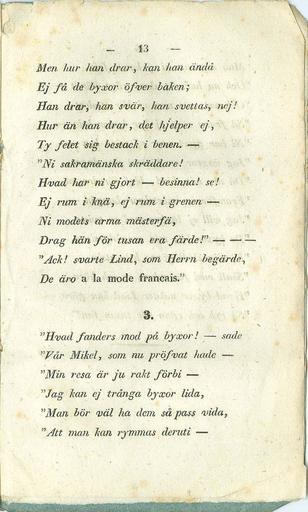 — 13 —
Men hur han drar, kan han ändå
Ej få de byxor öfver baken;
Han drar, han svär, han svettas, nej!
Hur än han drar, det hjelper ej,
Ty felet sig bestack i benen. —
"Ni sakramänska skräddare!
Hvad har ni gjort — besinna! se!
Ej rum i knä, ej rum i grenen —
Ni modets arma mästerfä,
Drag hän för tusan era färde!" — — —
"Ack! svarte Lind, som Herrn begärde,
De äro a la mode francais."
3.
"Hvad fanders mod på byxor! — sade
"Vår Mikel, som nu pröfvat hade —
"Min resa är ju rakt förbi —
"Jag kan ej trånga byxor lida,
"Man bör väl ha dem så pass vida,
"Att man kan rymmas deruti —